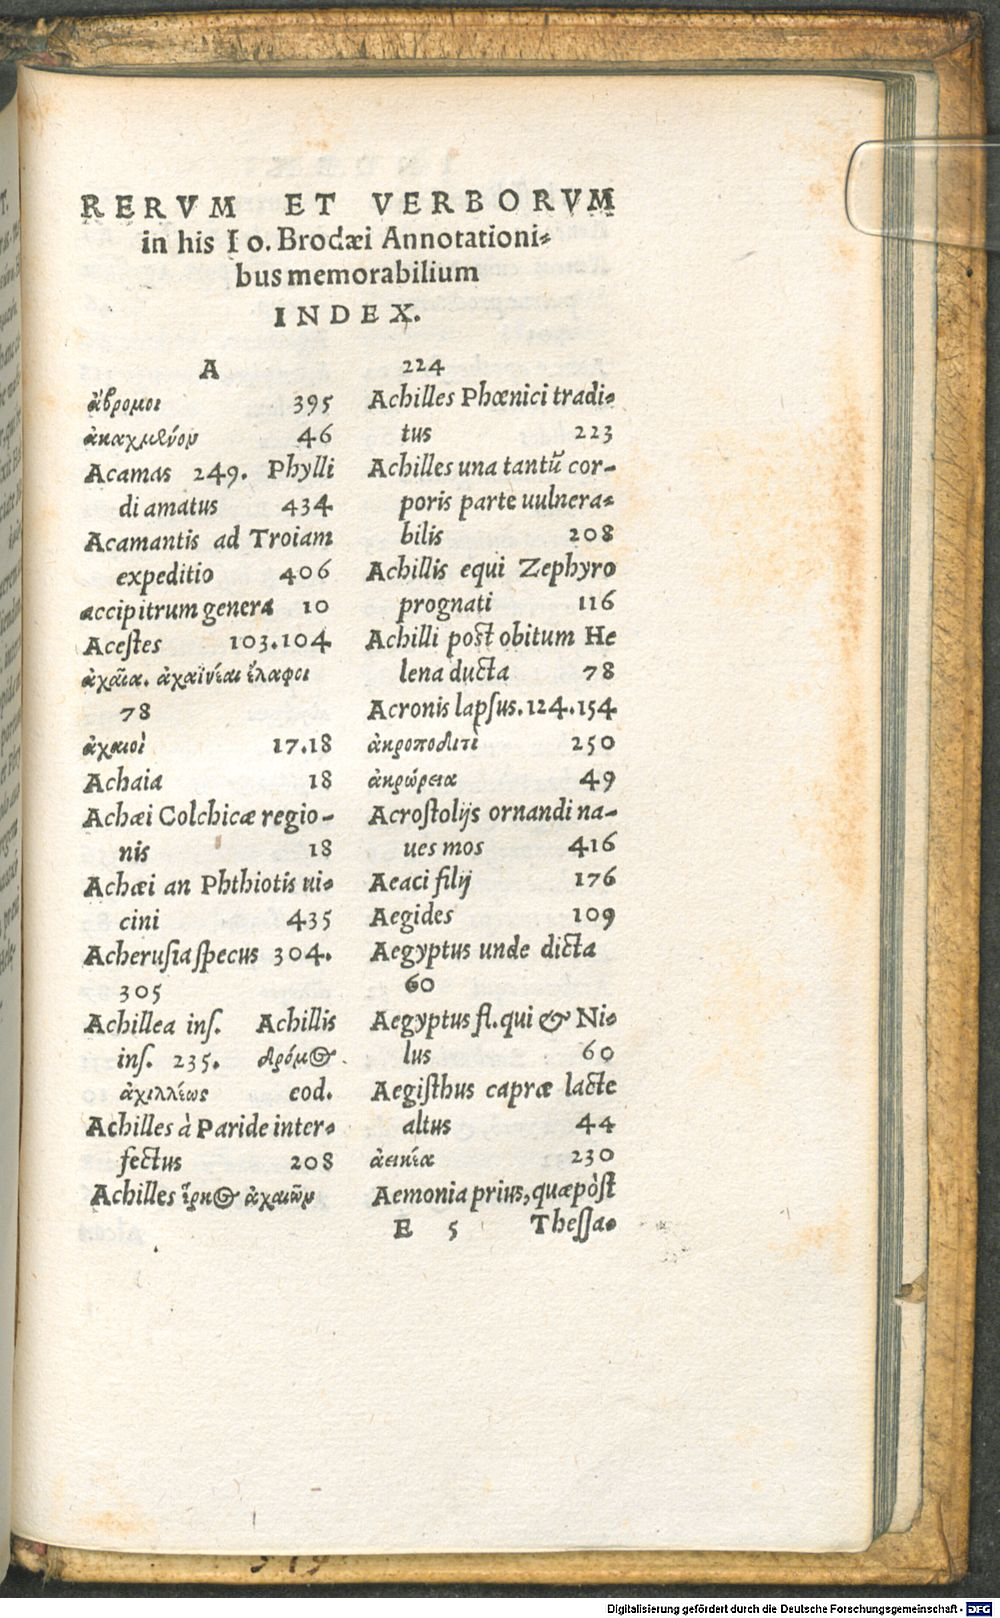 RERVM ET VERBORVM
in his Io. Brodæi Annotationi-
bus memorabilium
INDEX.
A
ἄβρομοι 395
ἀκαχμένον 46
Acamas 249. Phylli
di amatus 434
Acamantis ad Troiam
expeditio 406
accipitrum genera 10
Acestes 103.104
ἀχαΐα. ἀχαϊνέαι ἔλαφοι
78
ἀχαιοὶ 17.18
Achaia 18
Achæi Colchicæ regio-
nis 18
Achæi an Phthiotis ui-
cini 435
Acherusia specus 304.
305
Achillea inſ. Achillis
inſ. 235. δρόμος
ἀχιλλέως eod.
Achilles à Paride inter-
fectus 208
Achilles ἕρκος ἀχαιῶν
224
Achilles Phœnici tradi-
tus 223
Achilles una tantũ cor-
poris parte uulnera-
bilis 208
Achillis equi Zephyro
prognati 116
Achilli post obitum He
lena ducta 78
Acronis lapſus. 124.154
ἀκροποδιτὶ 250
ἀκρώρεια 49
Acroſtolijs ornandi na-
ues mos 416
Aeaci filij 176
Aegides 109
Aegyptus unde dicta
60
Aegyptus fl. qui & Ni-
lus 60
Aegiſthus capræ lacte
altus 44
ἀεικία 230
Aemonia prius, quæ pòſt
E 5 Theſſa-
Digitalisierung gefördert durch die Deutsche Forschungsgemeinschaft - DFG